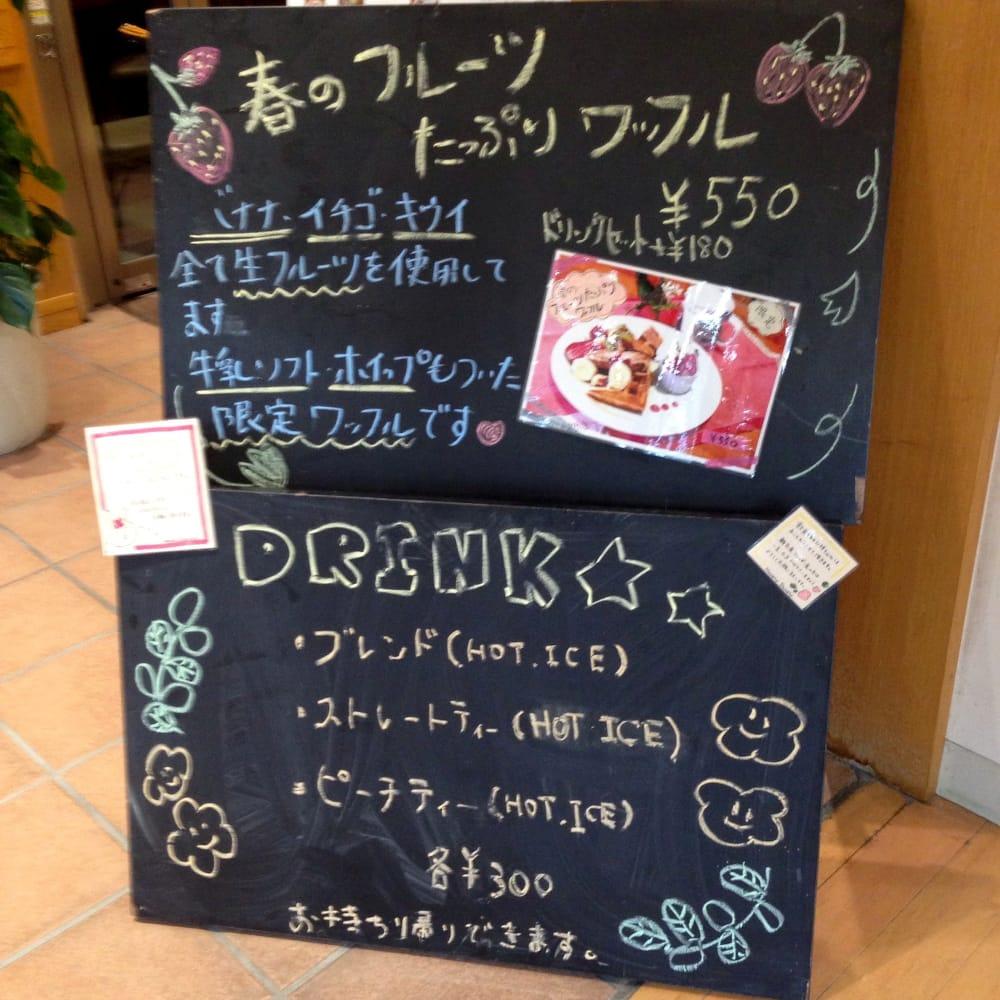 春のフルーツ
たっぷり ワッフル
¥550
ドリンクセット+¥180
バナナ・イチゴ・キウイ
全て生フルーツを使用して
ます
牛乳ソフト・ホイップもついた
限定ワッフルです
¥550
DRINK
・ブレンド(HOT.ICE)
・ストレートティー(HOT ICE)
・ピーチティー(HOT.ICE)
各¥300
お持ち帰りできます。